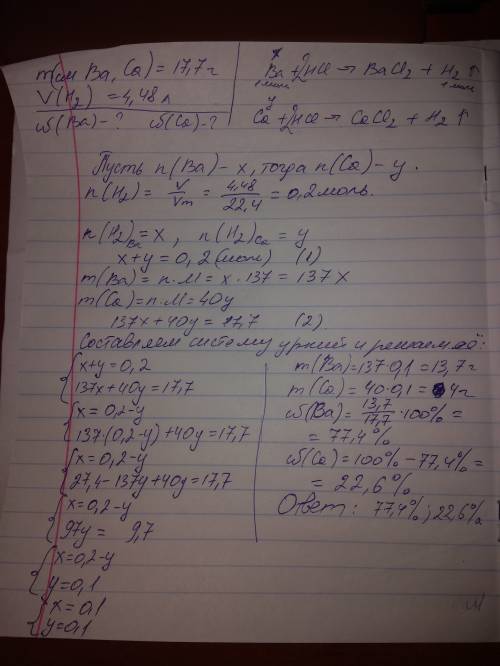 m(см Ba, Ca) = 17,7 г
V(H₂) = 4,48 л
ω(Ba) - ? ω(Ca) - ?
x
Ba + 2HCl → BaCl₂ + H₂ ↑
1 моль 1 моль
y
Ca + 2HCl → CaCl₂ + H₂ ↑
Пусть n(Ba) - x, тогда n(Ca) - y.
n(H₂) = V/Vm = 4,48/22,4 = 0,2 моль.
n(H₂)Ba = x, n(H₂)Ca = y
x + y = 0,2 (моль) (1)
m(Ba) = n·M = x·137 = 137x
m(Ca) = n·M = 40y
137x + 40y = 17,7 (2)
Составляем систему ур-ний и решаем её:
x + y = 0,2
137x + 40y = 17,7
x = 0,2 - y
137·(0,2 - y) + 40y = 17,7
x = 0,2 - y
27,4 - 137y + 40y = 17,7
x = 0,2 - y
97y = 9,7
x = 0,2 - y
y = 0,1
x = 0,1
y = 0,1
m(Ba) = 137·0,1 = 13,7 г
m(Ca) = 40·0,1 = 4 г
ω(Ba) = 13,7/17,7 · 100% =
= 77,4%
ω(Ca) = 100% - 77,4% =
= 22,6%
Ответ: 77,4%; 22,6%